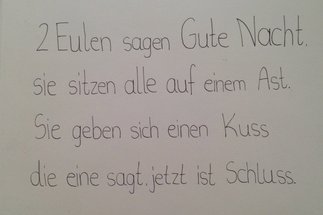 2 Eulen sagen Gute Nacht.
sie sitzen alle auf einem Ast.
Sie geben sich einen Kuss
die eine sagt.jetzt ist Schluss.